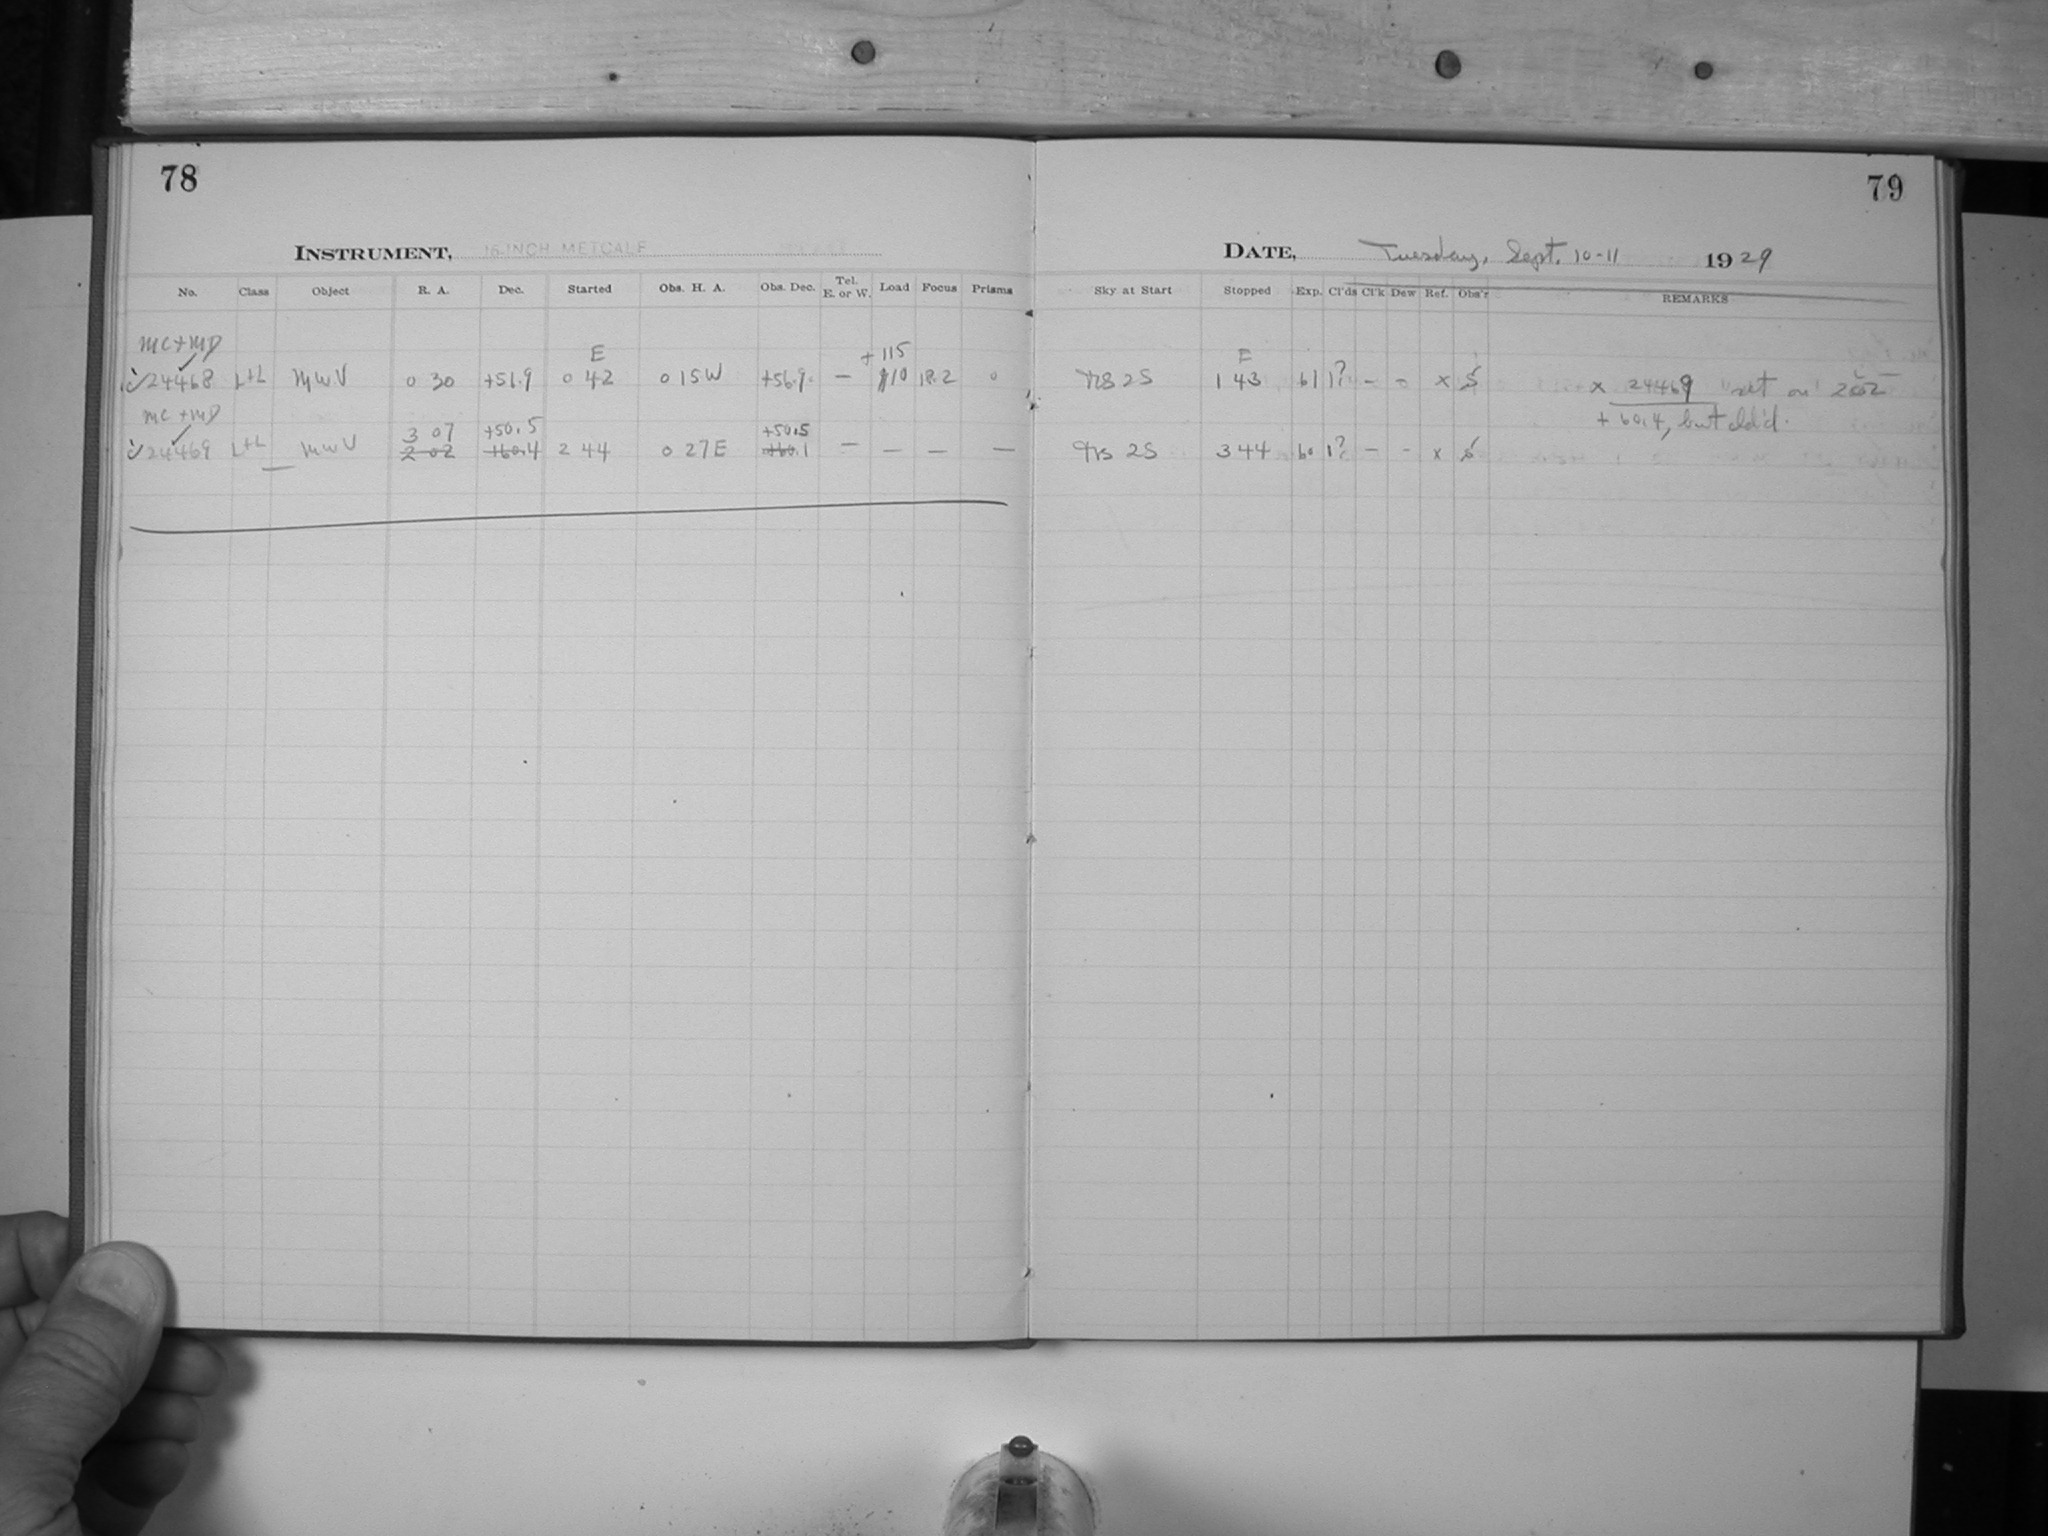 78
INSTRUMENT, 16-INCH METCALF
No. Class Object R. A. Dec. Started Obs. H. A. Obs. Dec. Tel. E. or W. Load Focus Prisms
MC+MD E +115
24468 L+L MWV 0 30 +56.9 0 42 0 15W +56.9 — 110 18.2 0
MC+MD 3 07 +50.5 +50.5
24469 L+L MWV 2 02 +60.4 2 44 0 27E +60.1 — — — —
79
DATE, Tuesday, Sept. 10-11 1929
Sky at Start Stopped Exp. Cl'ds Cl'k Dew Ref. Obs'r REMARKS
E
2S 1 43 61 1? – – x S x 24469 "set on" 202
+60.4, but cld'd.
2S 3 44 60 1? – – x S